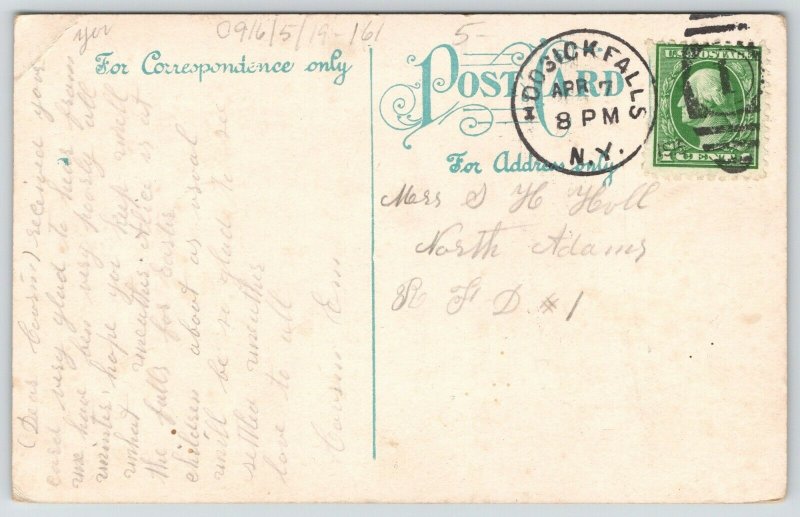 you
0916/5/19-161
5-
For Correspondence only
POST CARD
For Address only
HOOSICK FALLS
APR 7
8 PM
N.Y.
U.S. POSTAGE
CENT
Mrs S H Hall
North Adams
R F D #1
(Dear Cousin) received your
card very glad to hear from
we have ben very poorly all
winter, hope you kep well
what weather Alice is at
the falls for Easter
children about as usual
will be so glad to see
settled weather
love to all
Cousin Em